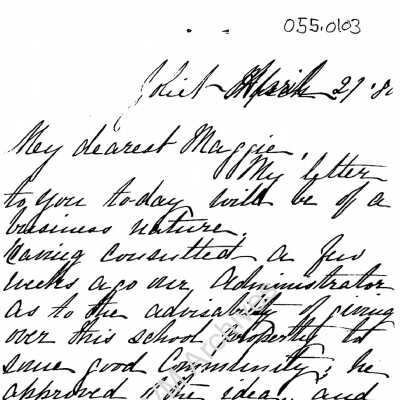 055.0103
Joliet April 27 '80
My dearest Maggie,
My letter
to you today will be of a
business nature.
Having consulted a few
weeks ago our Administrator
as to the advisability of giving
over this school property to
some good Community; he
approved of the idea, and
RM Archives